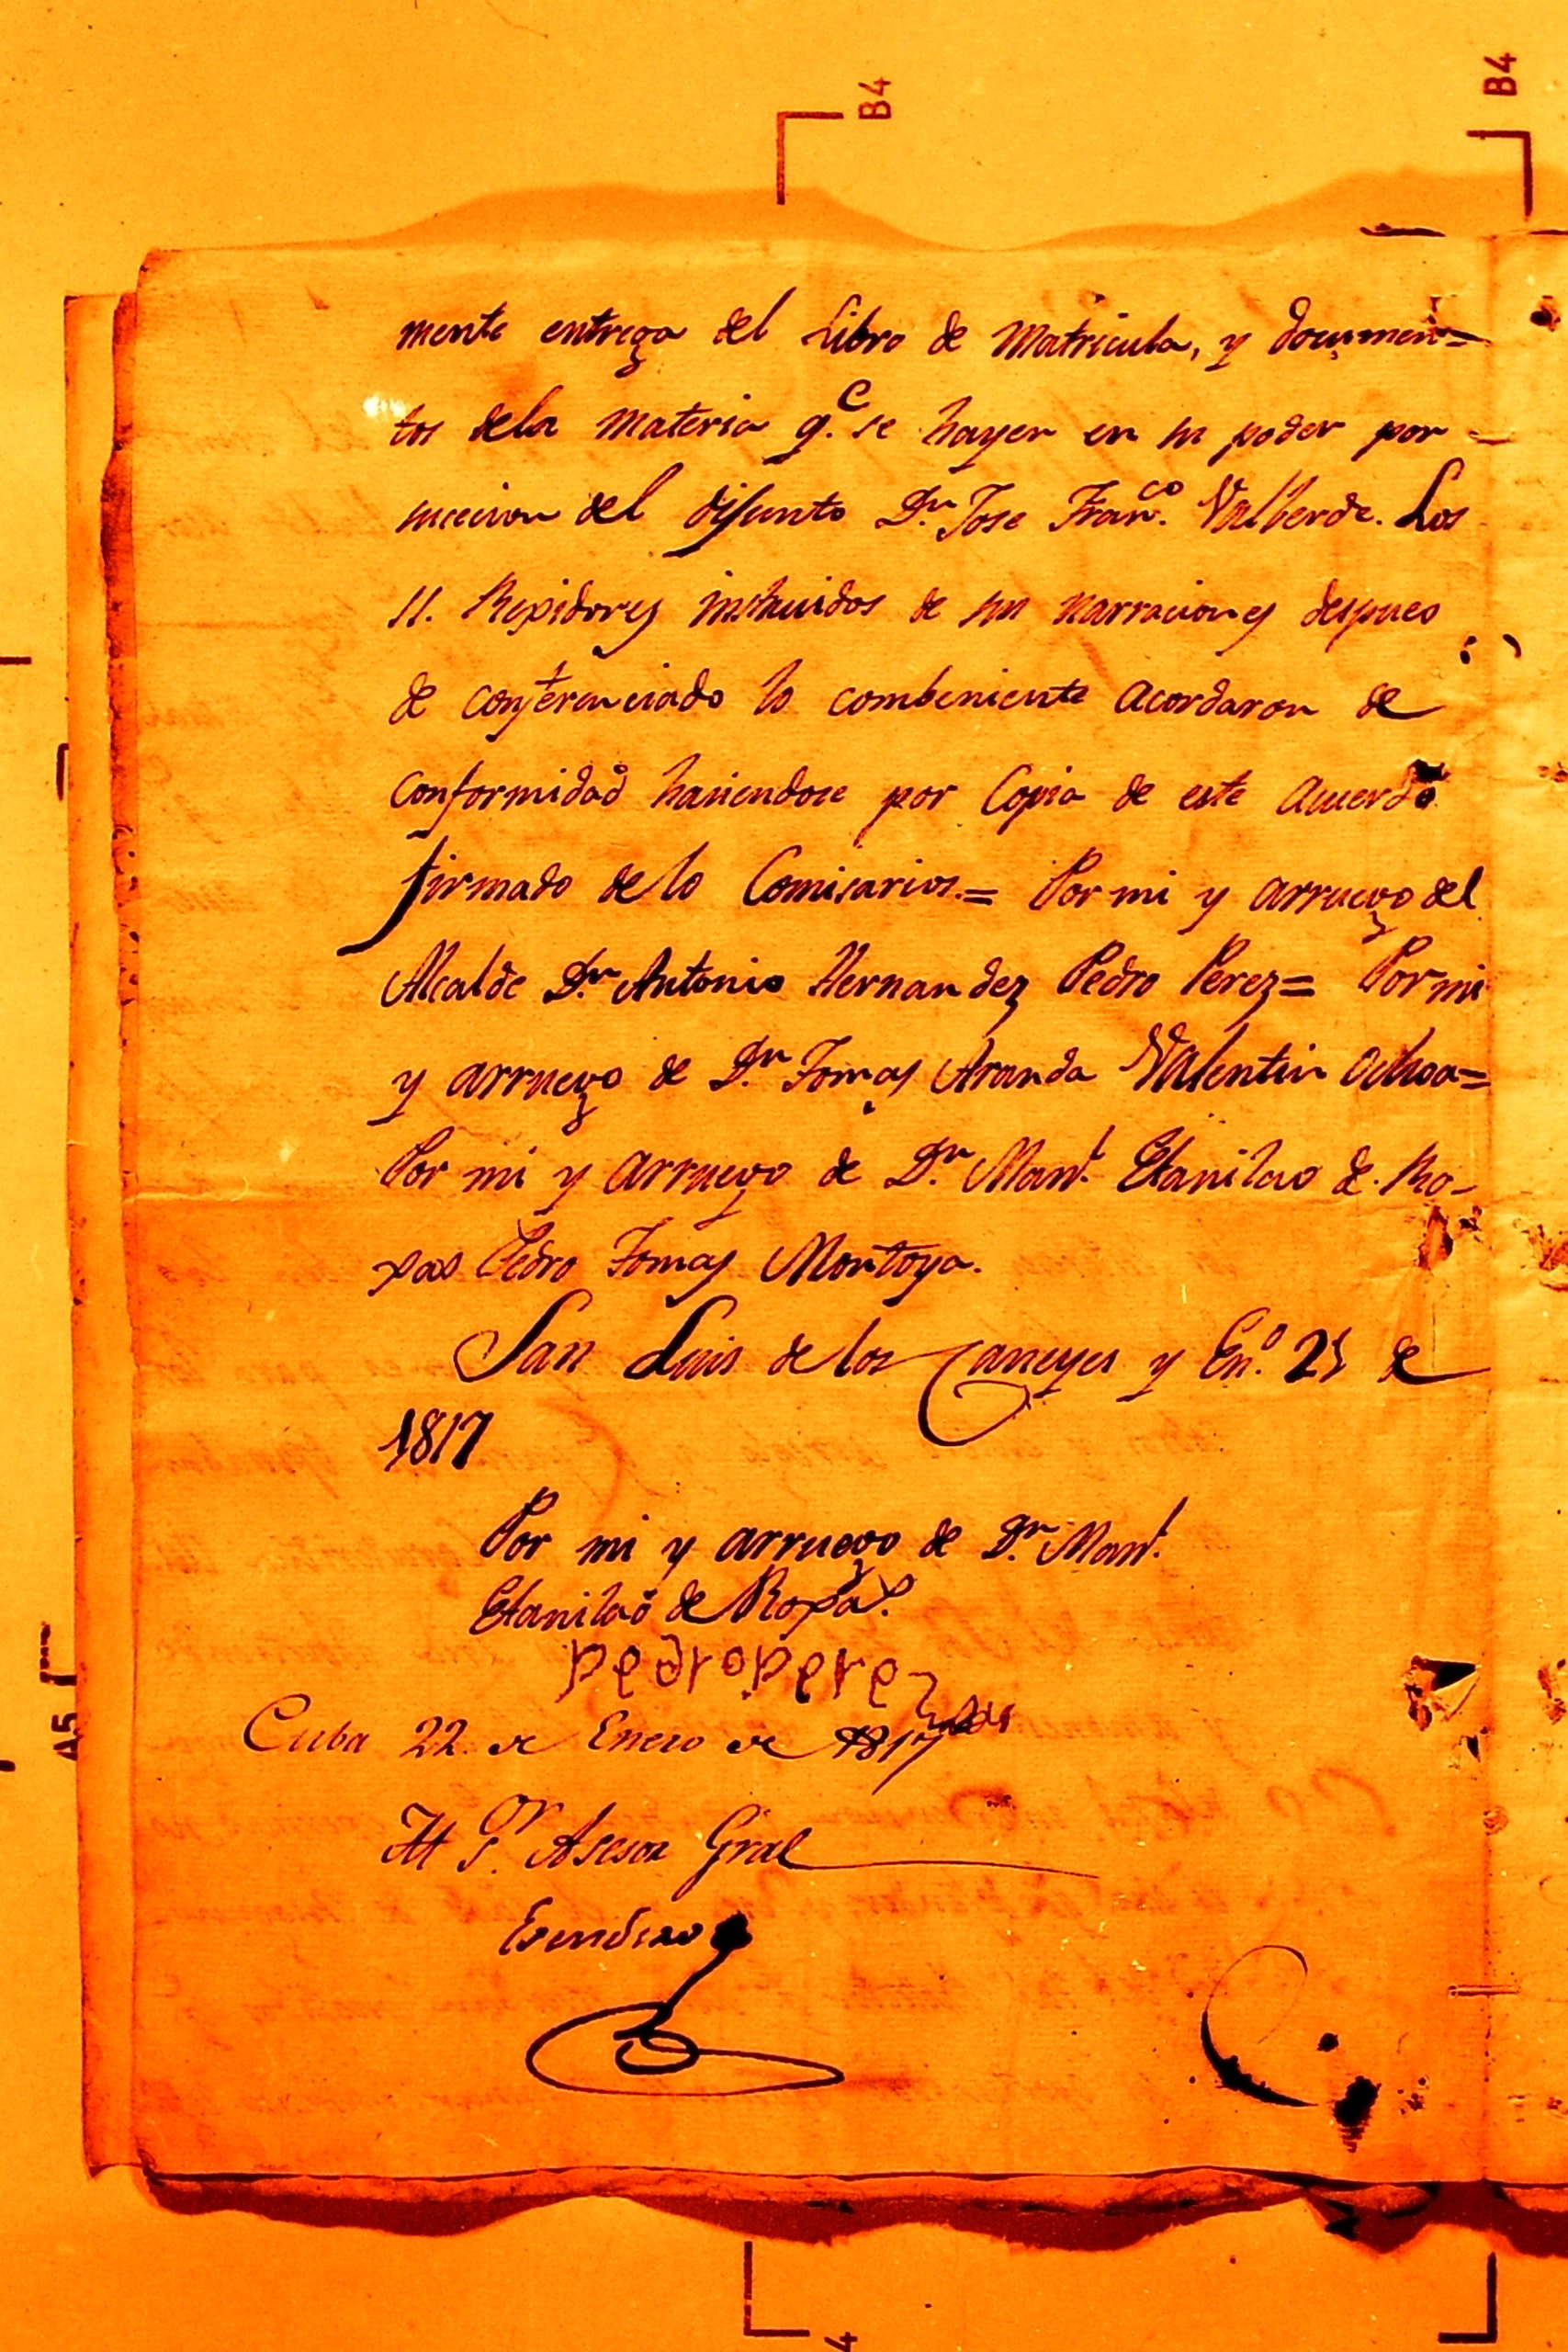 B4
B4
mente entrega del Libro de Matricula, y documen=
tos dela materia q.e se hayen en su poder por
sucecion del difunto Dn. Jose Franco. Valberde. Los
SS. Rexidores instruidos de sus narraciones despues
de conferenciado lo combeniente acordaron de
conformidad haciendose por Copia de este acuerdo
firmado de lo Comisarios.= Por mi y arruego del
Alcalde Dn. Antonio Hernandez Pedro Perez= Por mi
y arruego de Dn. Tomas Aranda Valentin Ochoa=
Por mi y arruego de Dn. Manl. Etanilao de Ro-
xas Pedro Tomas Montoya.
San Luis de los Caneyes y En.o 21 de
1817
Por mi y arruego de Dn. Manl.
Etanilao de Roxas.
pedro perez
Cuba 22 de Enero de 1817
Al Sor. Asesor Gral
Escudero
A5
4